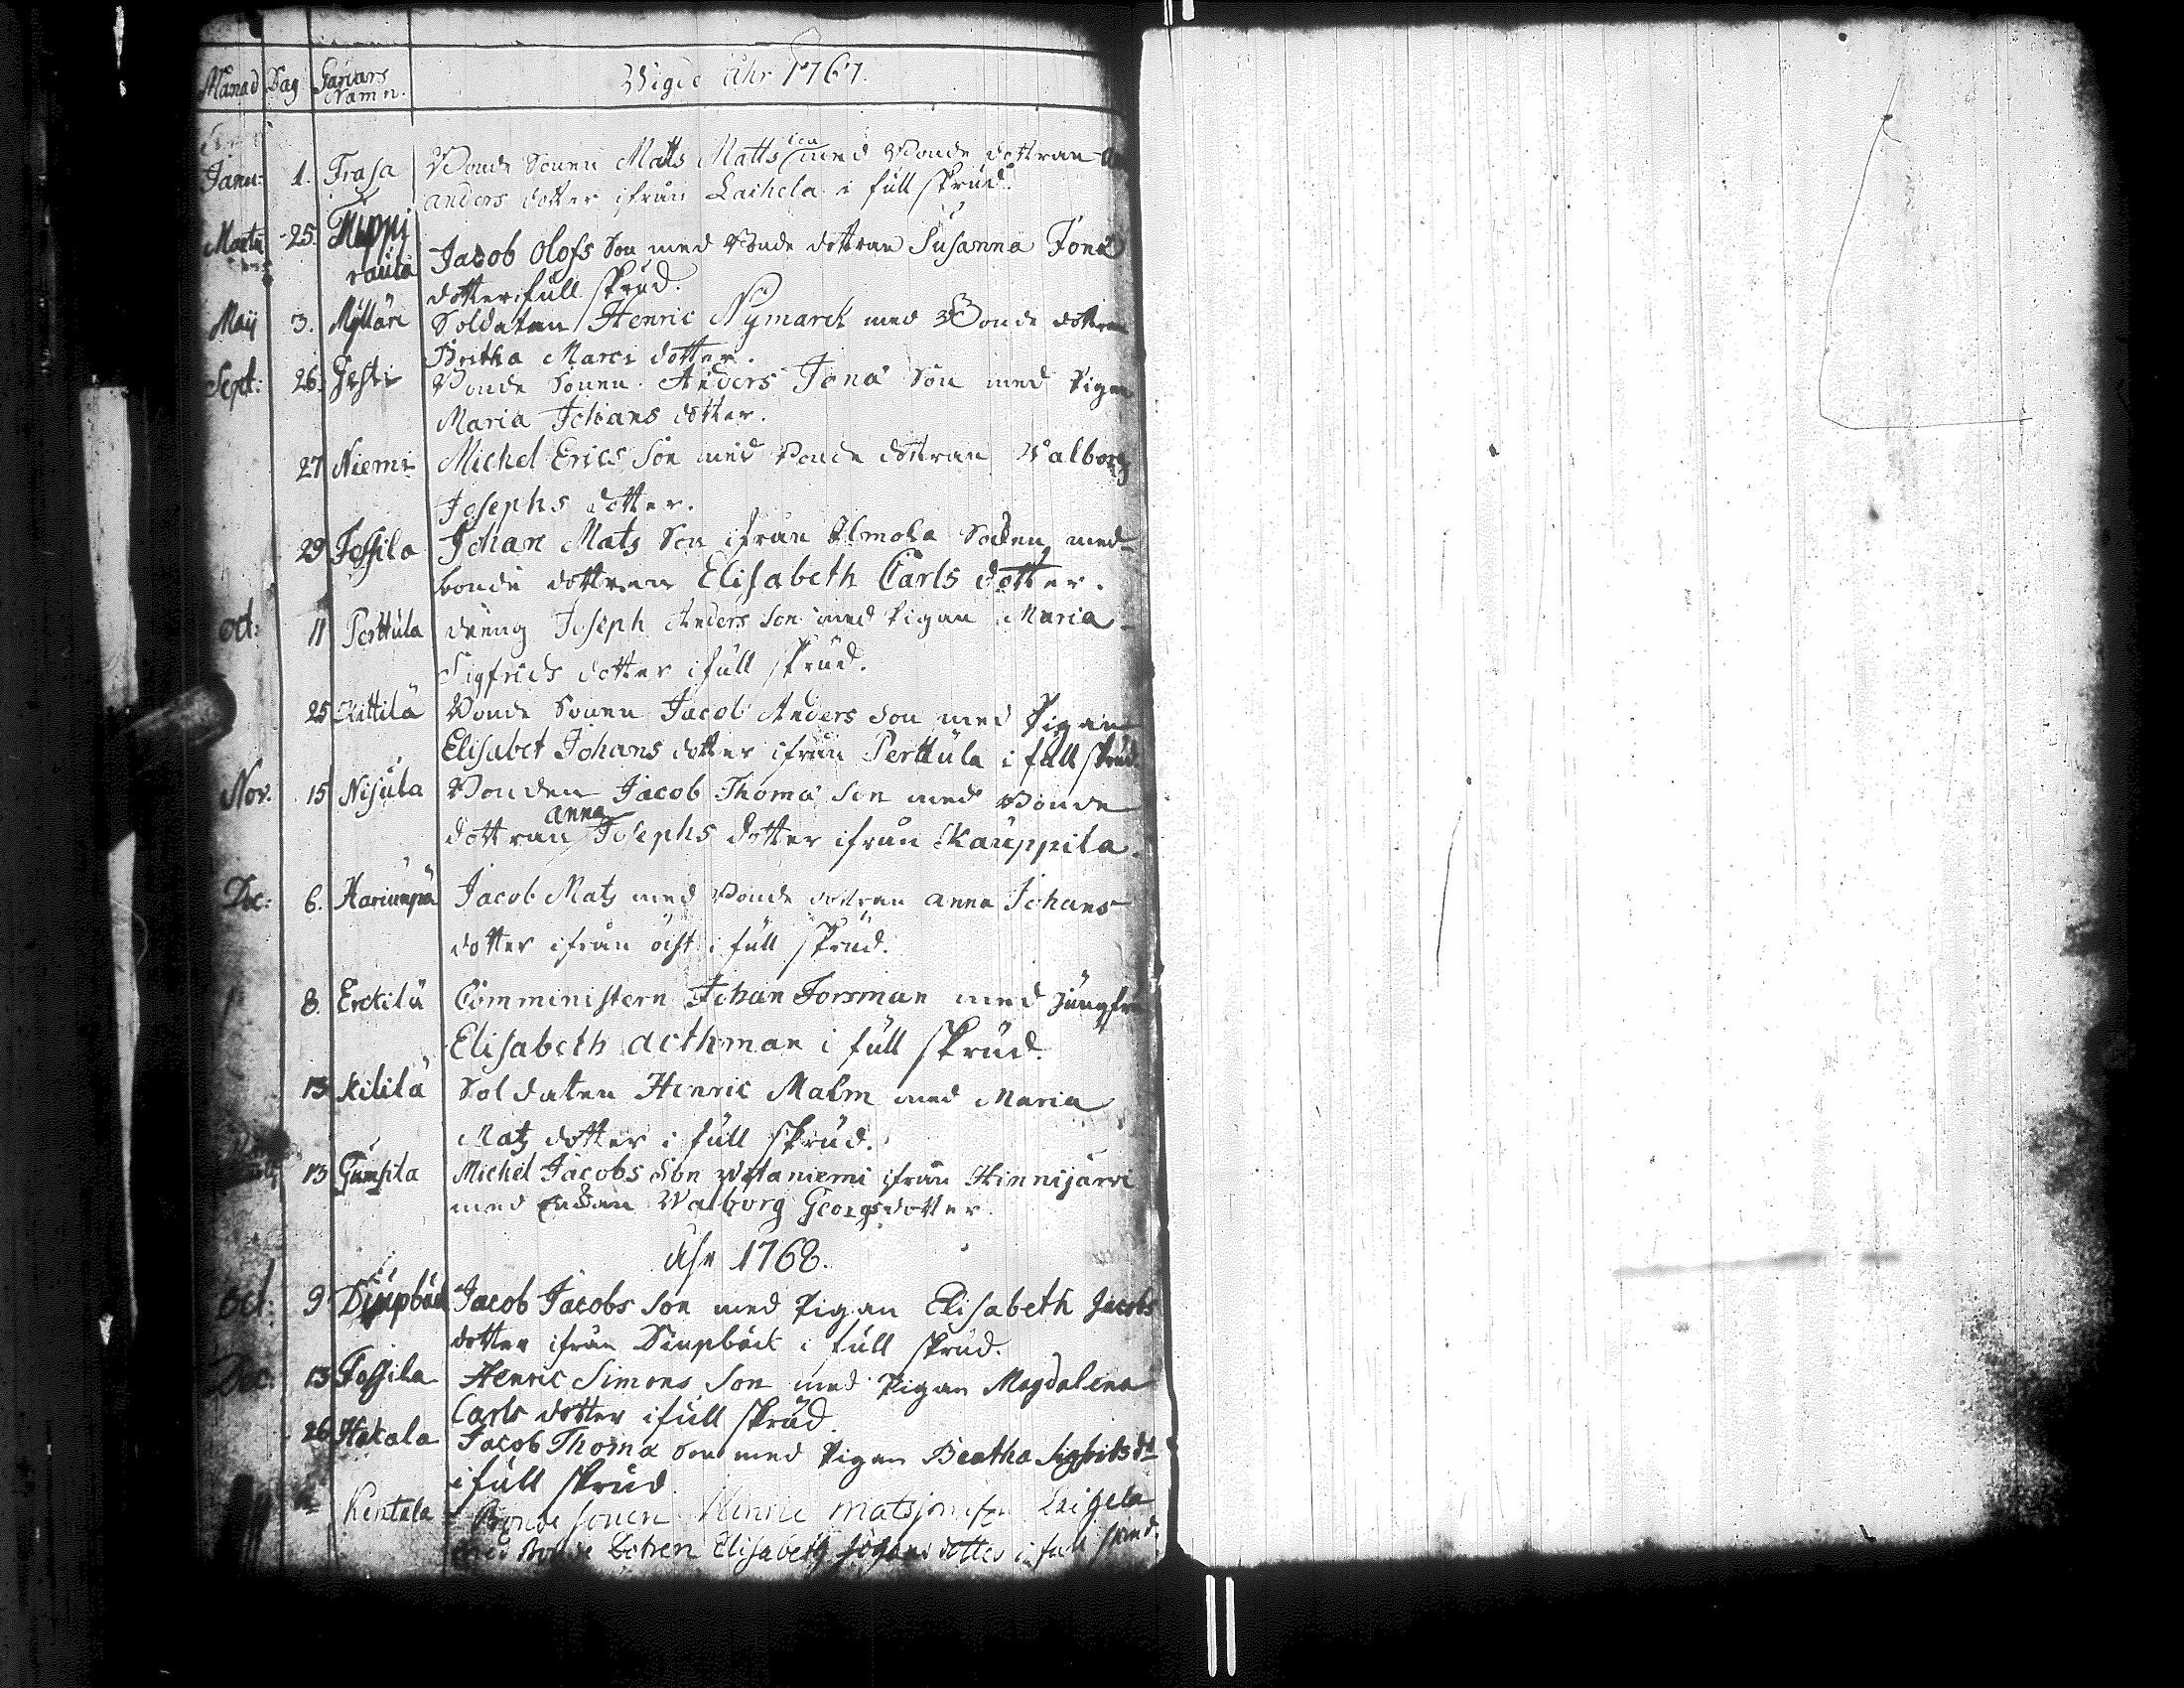 Månad Dag Gårdars Namn. Wigde Åhr 1767.
Janu: 1. Frasa Bonde Sonen Matts Mattsson med Bonde dottran
anders dotter ifrån Laihela i full skrud.
Martii 25. rauta Jacob Olofs Son med Bonde dottran Susanna Jona
dotter i full skrud.
Maij 3. Myllärì Soldaten Henric Nymarck med Bonde dottran
Britha Marci dotter.
Sept: 26. Jesti Bonde Sonen Anders Jona Son med Pigan
Maria Johans dotter.
27 Niemi Michel Erics Son med Bonde dottran Walborg
Josephs dotter.
29 Fossila Johan Mats Son ifrån Ilmola Socken med
bonde dottran Elisabeth Carls dotter.
Oct: 11 Perttula dräng Joseph Anders Son med Pigan Maria
Sigfrids dotter i full skrud.
25 Kittilä Bonde Sonen Jacob Anders Son med Pigan
Elisabet Johans dotter ifrån Perttula i full skrud.
Nov. 15 Nisula Bonden Jacob Thoma Son med Bonde
dottran anna Josephs dotter ifrån Kauppila.
Dec: 6. Hariunpä Jacob Mats med Bonde dottran anna Johans
dotter ifrån öist i full skrud.
8. Erckilä Comministern Johan Forsman med jungfru
Elisabeth Aethman i full skrud.
13 Kililä Soldaten Henric Malm med Maria
Mats dotter i full skrud.
13 Gumsila Michel Jacobs Son Wälaniemi ifrån Hinnijärvi
med Walborg Georgs dotter.
Åhr 1768.
Oct: 9. Diupbäck Jacob Jacobs Son med Pigan Elisabeth Jacobs
dotter ifrån Diupbäck i full skrud.
Dec: 13 Fossila Henric Simons Son med Pigan Magdalena
Carls dotter i full skrud.
26 Hakala Jacob Thoma Son med Pigan Beatha Sigfrids dr
i full skrud
Rentala Bonde sonen Henric Matsson
med Bonde Dotren Elisabeth Johans dotter i full skrud.